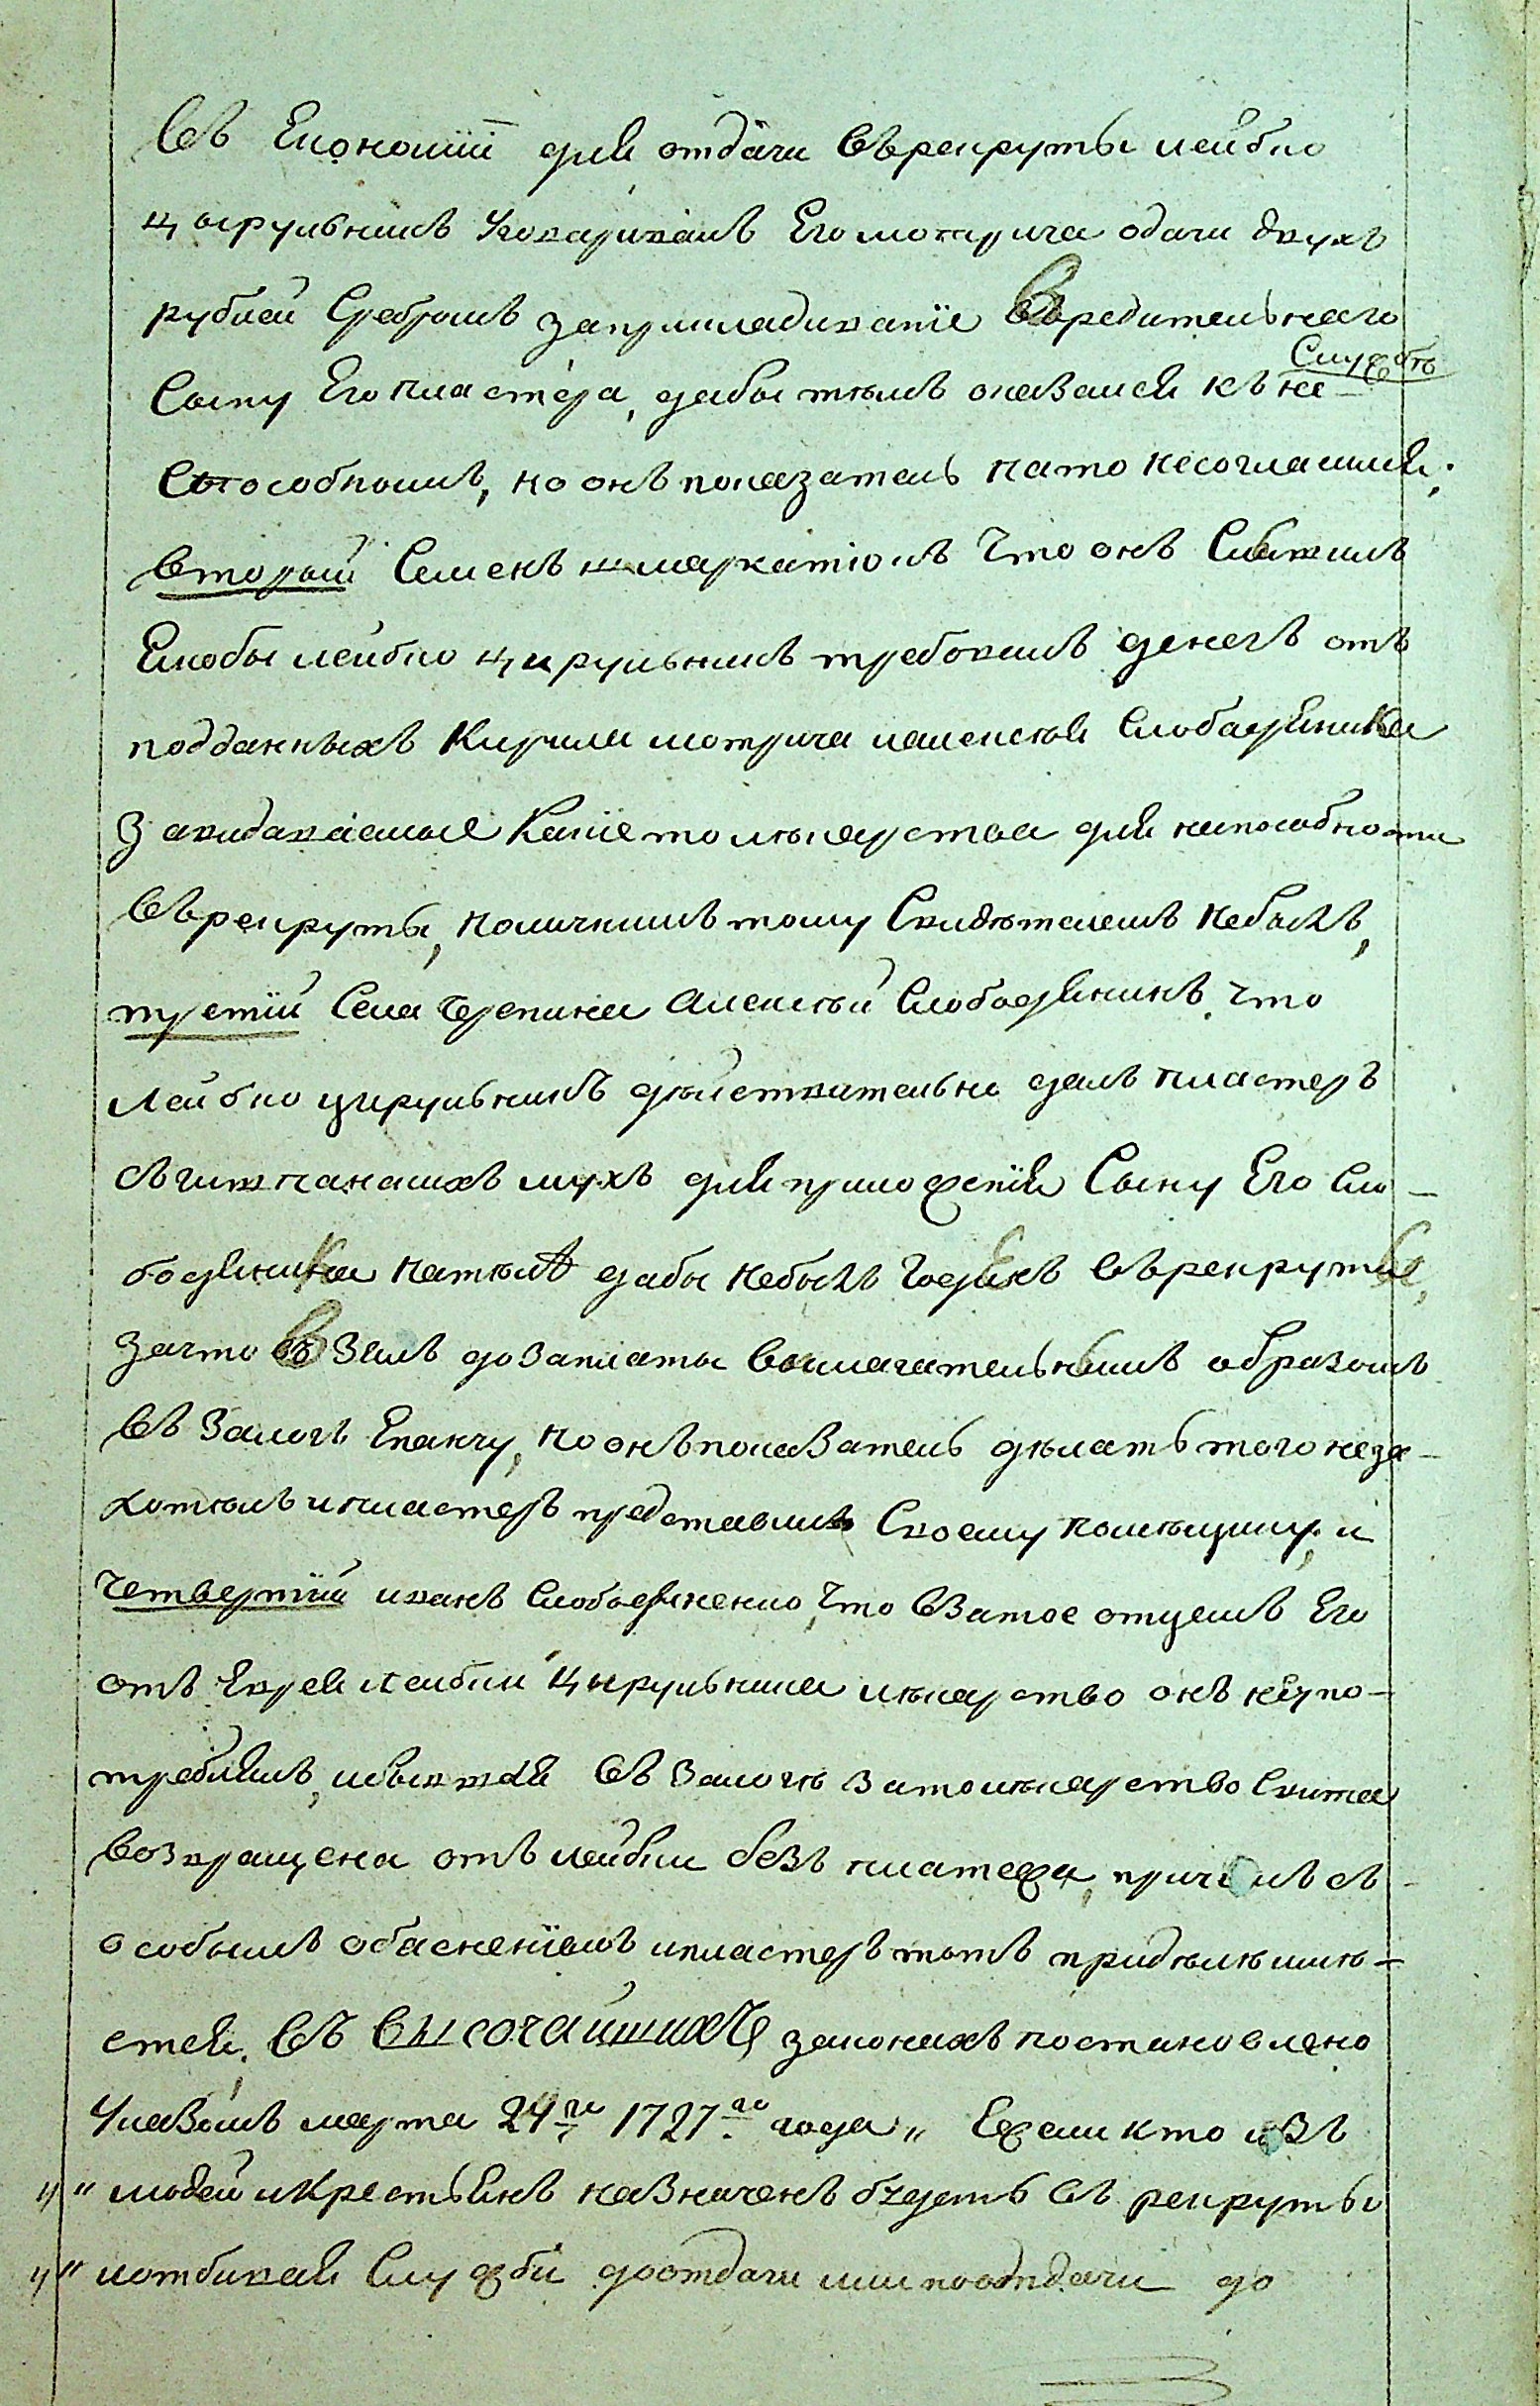 въ Економїи для отдачи въ рекруты лейбко
цырульникъ уговаривалъ Его мотрича одачи двухъ
рублей Сребромъ заприкладиванїе вредительнаго
Сыну Его пластера, дабы тѣмъ оказался къ Службѣ не-
способнымъ, но онъ показатель нато несогласился;
вторый Семенъ что онъ Слышилъ
Якобы лейбко цирульникъ требовалъ денегъ отъ
подданныхъ Кирила мотрича иалексѣя Слободяника
задаваемые Какїето лѣкарства для неспособности
въ рекруты, ноличнымъ тому Свидѣтелемъ небылъ,
третїй Села Черепина Алексѣй Слободяникъ, что
Лейбко цирульникъ дѣйствительно далъ пластеръ
съ гишпанскихъ мухъ для приложенїя Сыну Его Сло-
бодяника натѣло дабы небылъ годенъ въ рекруты,
зачто взялъ до заплаты вымагательнымъ образомъ
въ Залогъ Епанчу, но онъ показатель дѣлать того неза-
хотѣлъ ипластеръ представилъ Своему помѣщику, и
четвертїй иванъ Слободяненко, что взятое отцемъ Его
отъ Еврея Лейбки Цырульника лѣкарство онъ неупо-
треблялъ, ивзятая въ Залогъ зато лѣкарство Свита
возвращена отъ лейбки безъ платежа, причемъ съ
особымъ обясненїемъ ипластеръ тотъ придѣлѣ имѣ-
ется. въ высочайшихъ законахъ постановлено
Указомъ марта 24го 1727го года „ Ежели кто изъ
„ людей икрестьянъ назначенъ будетъ въ рекруты
„ иотбивая Службы доотдачи или поотдачи до